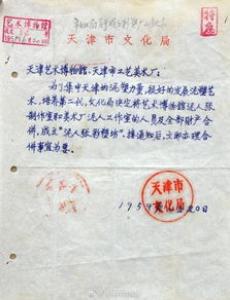 艺术博物館
天津市文化局
天津艺术博物館：天津市工艺美术厂：
为了集中天津的泥塑力量，很好的发展泥塑艺
术，培养第二代，文化局决定将艺术博物館泥人张
制作室和美术厂泥人工作室的人员及全部财产合
併，成立“泥人张彩塑坊”，接通知后，立即办理合
併事宜为要。
天津市
文化局
1959年